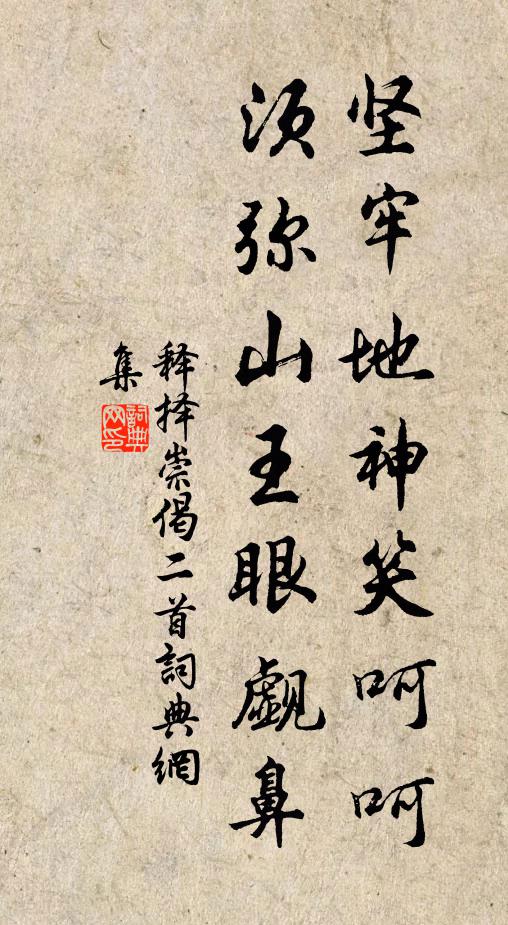 坚牢地神笑呵呵
须弥山王眼觑鼻
释择崇偈二首詞典網
集
詞典網印